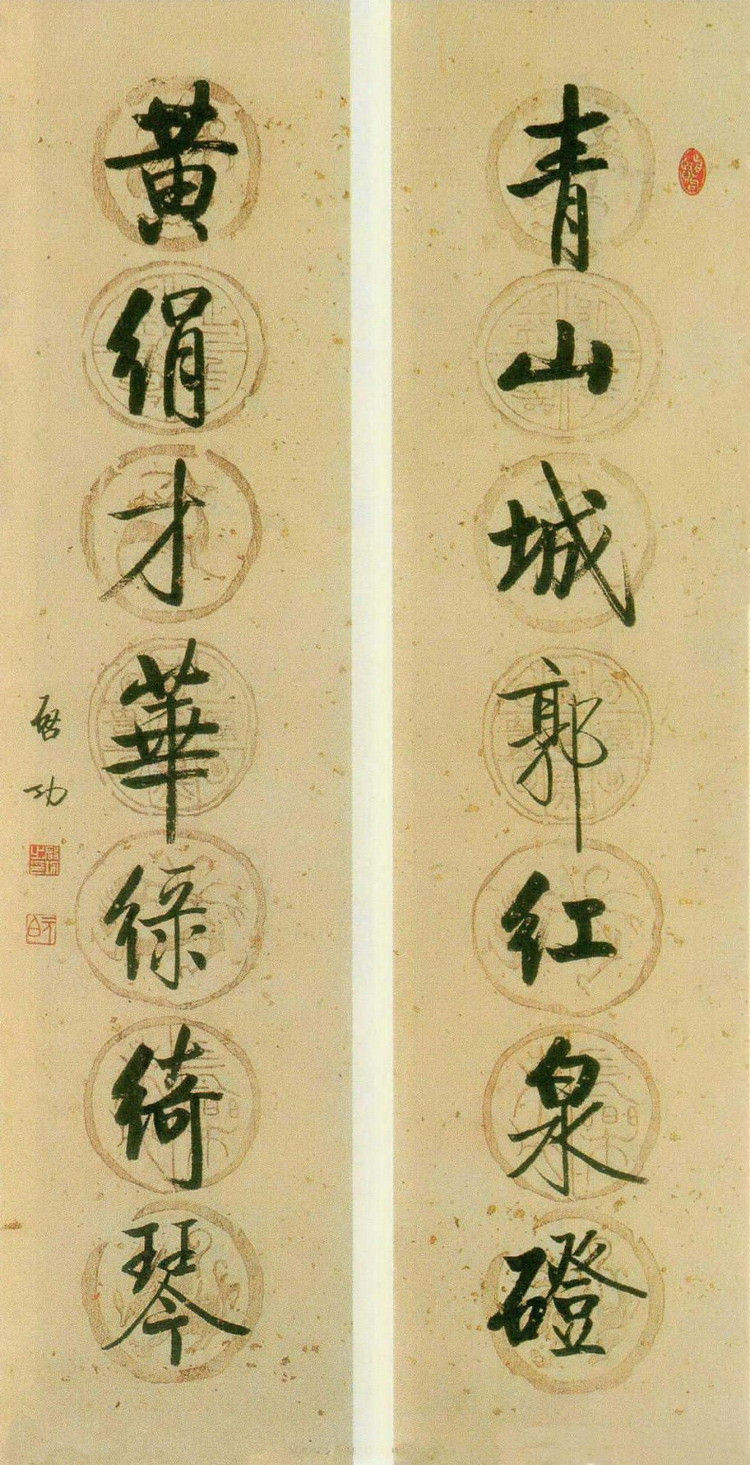 青山城郭红泉磴
黄絹才華緑綺琴
啓功